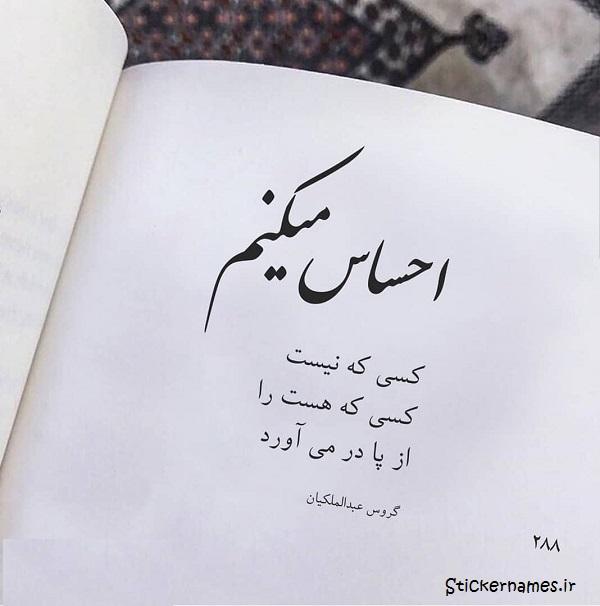 احساس میکنم
کسی که نیست
کسی که هست را
از پا در می آورد
گروس عبدالملکیان
۲۸۸
Stickernames.ir